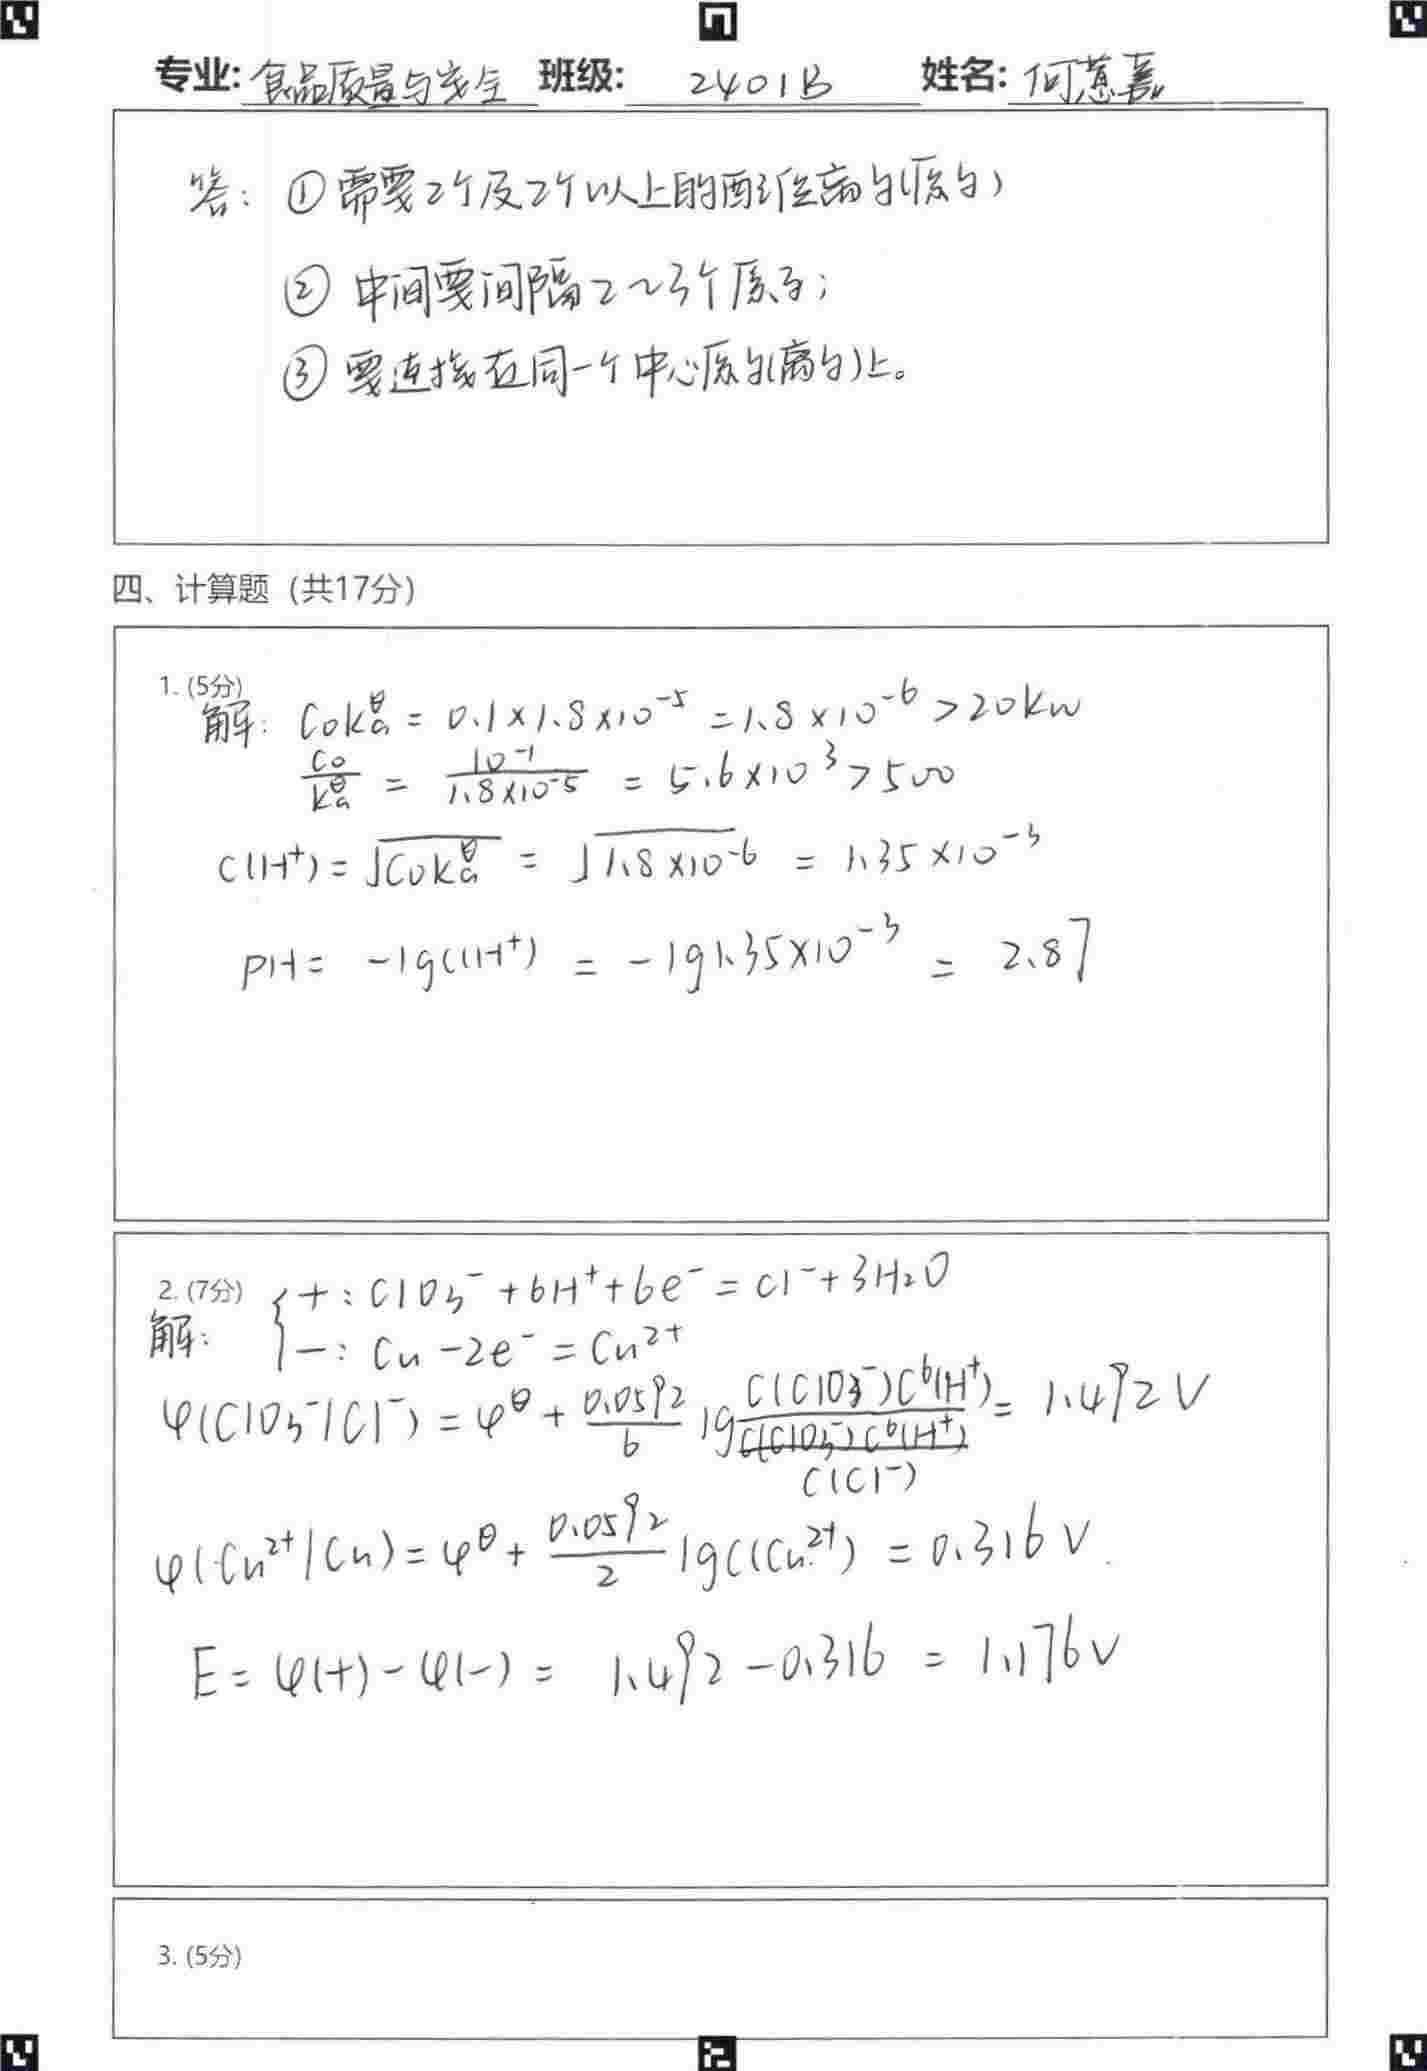 专业: 食品质量与安全 班级: 2401B 姓名: 何慧嘉
答: ①需要2个及2个以上的配位离子(原子)
② 中间要间隔2~3个原子;
③ 要连接在同一个中心原子(离子)上。
四、计算题 (共17分)
1. (5分)
解: C₀Kₐ^θ = 0.1×1.8×10⁻⁵ = 1.8×10⁻⁶ > 20Kw
C₀/Kₐ^θ = 10⁻¹/1.8×10⁻⁵ = 5.6×10³ > 500
C(H⁺) = √C₀Kₐ^θ = √1.8×10⁻⁶ = 1.35×10⁻³
PH = -lgC(H⁺) = -lg1.35×10⁻³ = 2.87
2. (7分) { +: ClO₃⁻ + 6H⁺ + 6e⁻ = Cl⁻ + 3H₂O
解: -: Cu - 2e⁻ = Cu²⁺
φ(ClO₃⁻/Cl⁻) = φ^θ + 0.0592/6 lg C(ClO₃⁻)C⁶(H⁺)/C(Cl⁻) = 1.492V
φ(Cu²⁺/Cu) = φ^θ + 0.0592/2 lgC(Cu²⁺) = 0.316V
E = φ(+) - φ(-) = 1.492 - 0.316 = 1.176V
3. (5分)